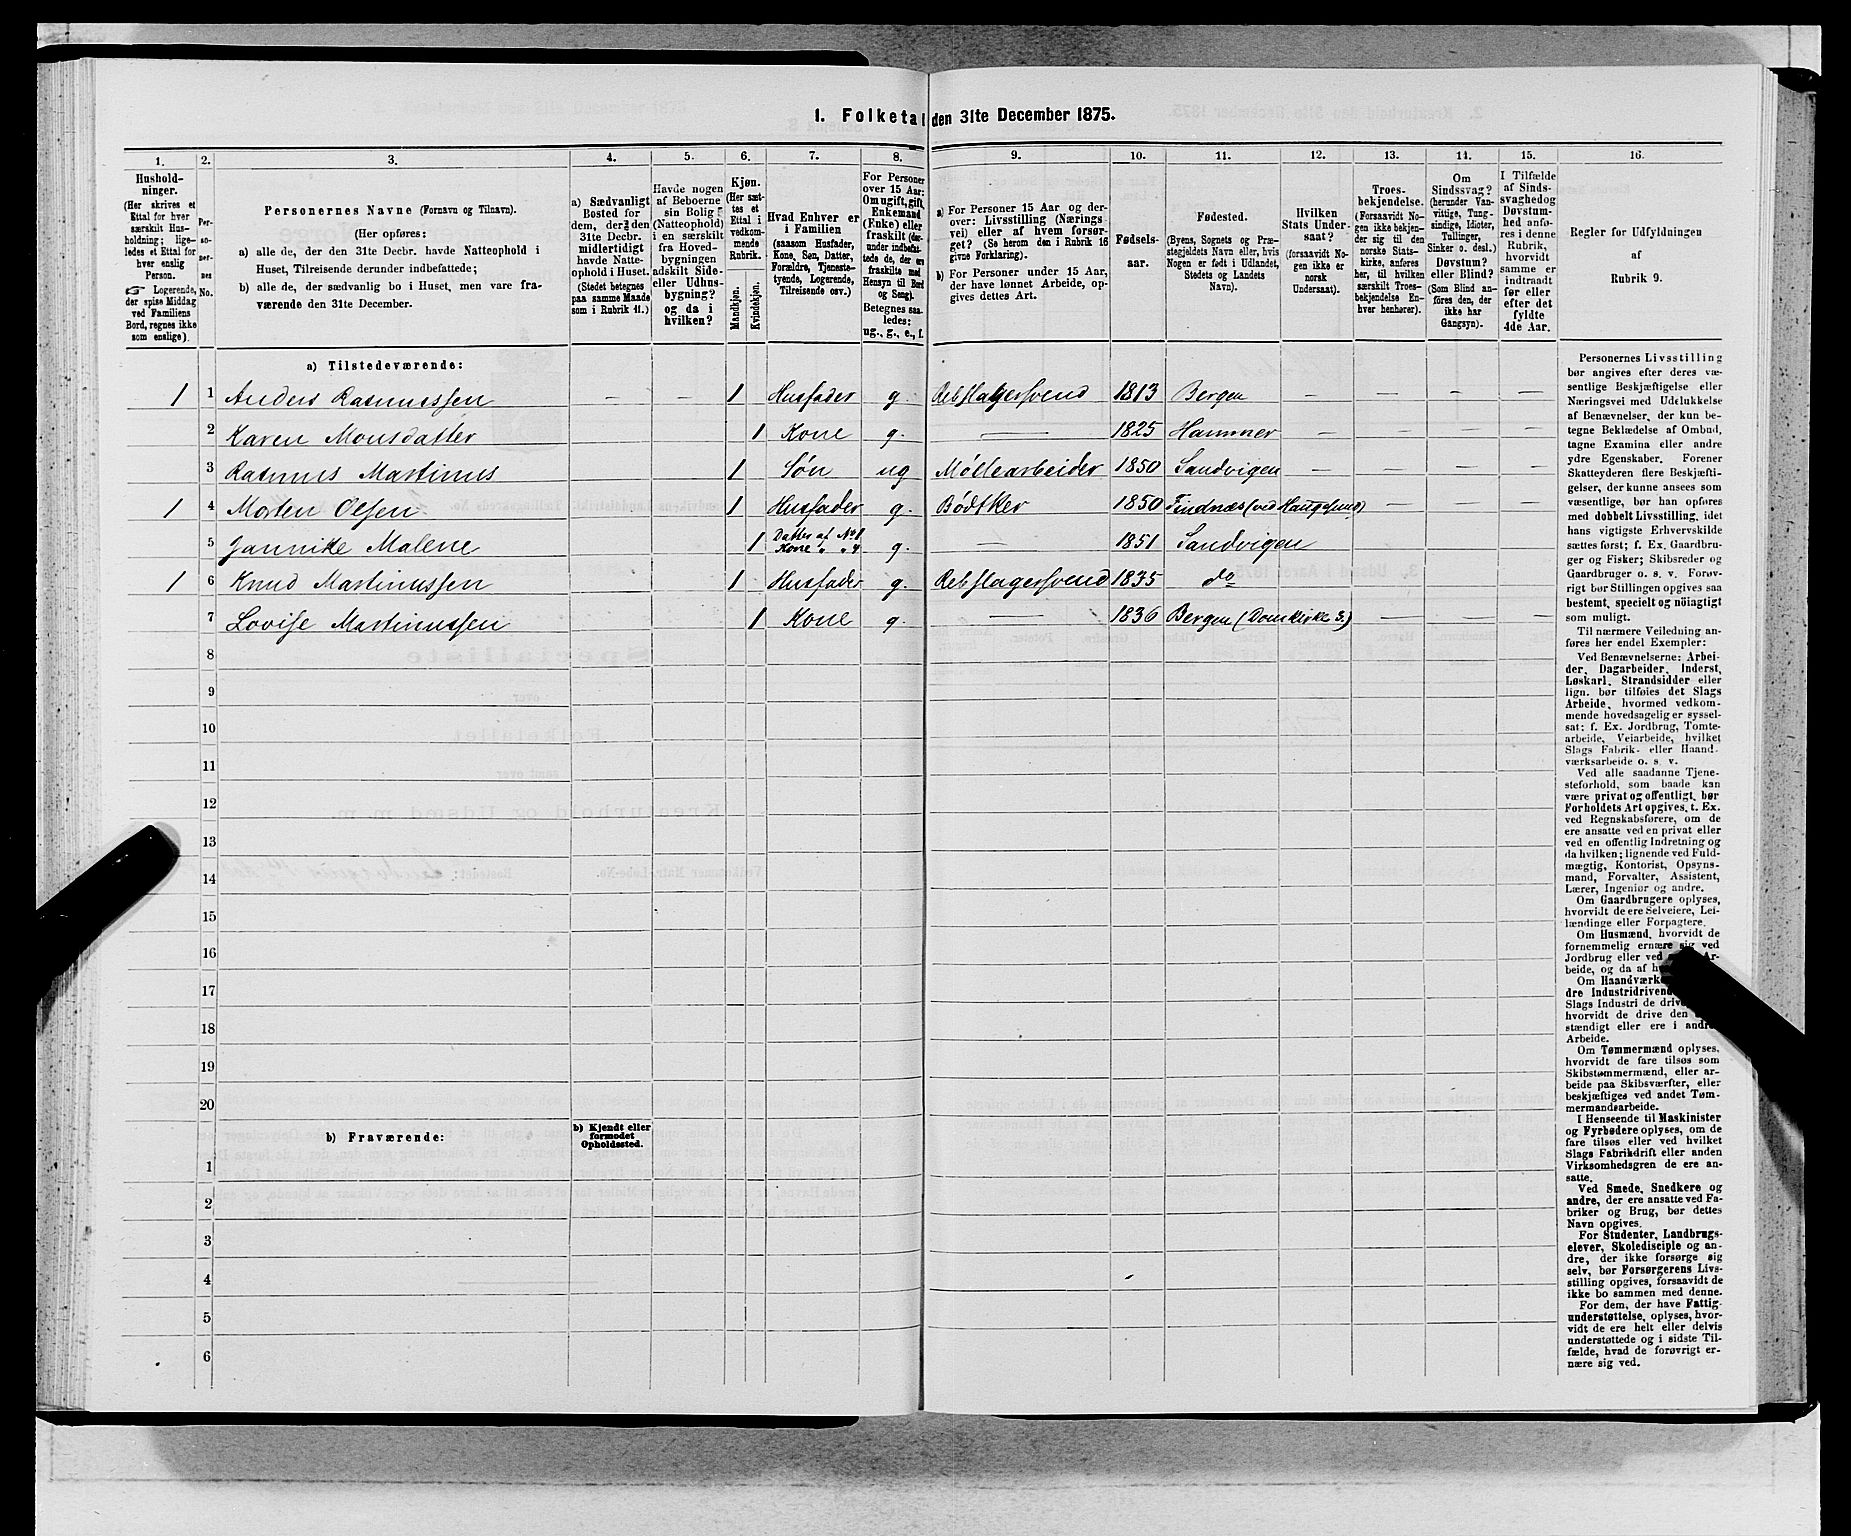 1. Folketal den 31te December 1875.
1. 2. 3. 4. 5. 6. 7. 8. 9. 10. 11. 12. 13. 14. 15. 16.
Hushold-
ninger.
(Her skrives et
Ettal for hver
særskilt Hus-
holdning; lige-
ledes et Ettal for
hver enslig
Person.
☞ Logerende,
der spise Middag
ved Familiens
Bord, regnes ikke
som enslige).
Per-
so-
ner-
nes
No.
Personernes Navne (Fornavn og Tilnavn).
(Her opføres:
a) alle de, der den 31te Decbr. havde Natteophold i
Huset, Tilreisende derunder indbefattede;
b) alle de, der sædvanlig bo i Huset, men vare fra-
værende den 31te December.
a) Sædvanligt
Bosted for
dem, der den
31te Decbr.
midlertidigt
havde Natte-
ophold i Huset.
(Stedet betegnes
paa samme Maade
som i Rubrik 11.)
Havde nogen
af Beboerne
sin Bolig
(Natteophold)
i en særskilt
fra Hoved-
bygningen
adskilt Side-
eller Udhus-
bygning?
og da i
hvilken?
Kjøn.
(Her sæt-
tes et
Ettal i
vedkom-
mende
Rubrik.
Mandkjøn.
Kvindekjøn.
Hvad Enhver er
i Familien
(saasom Husfader,
Kone, Søn, Datter,
Forældre, Tjeneste-
tyende, Logerende,
Tilreisende osv.)
For Personer
over 15 Aar:
Om ugift, gift,
Enkemand
(Enke) eller
fraskilt (der-
under indbefat-
tede de, der ere
fraskilte med
Hensyn til Bord
og Seng).
Betegnes saa-
ledes:
ug., g., e., f.
a) For Personer 15 Aar og der-
over: Livsstilling (Nærings-
vei) eller af hvem forsør-
get? (Se herom den i Rubrik 16
givne Forklaring).
b) For Personer under 15 Aar,
der have lønnet Arbeide, op-
gives dettes Art.
Fødsels-
aar.
Fødested.
(Byens, Sognets og Præ-
stegjeldets Navn eller, hvis
Nogen er født i Udlandet,
Stedets og Landets
Navn).
Hvilken
Stats Under-
saat?
(forsaavidt No-
gen ikke er
norsk
Undersaat).
Troes-
bekjendelse.
(Forsaavidt No-
gen ikke bekjen-
der sig til den
norske Stats-
kirke, anføres
her, til hvilken
særskilt Troes-
bekjendelse En-
hver henhører).
Om
Sindssvag?
(herunder Van-
vittige, Tung-
sindige, Idioter,
Tullinger,
Sinker o. desl.)
Døvstum?
eller Blind?
(Som Blind an-
føres den, der
ikke har
Gangsyn).
I Tilfælde
af Sinds-
svaghed og
Døvstum-
hed anfø-
res i denne
Rubrik,
hvorvidt
samme er
indtraadt
før eller
efter det
fyldte
4de Aar.
Regler for Udfyldningen
af
Rubrik 9.
a) Tilstedeværende:
1 1 Anders Rasmussen — — 1 Husfader g. Rebslagersvend 1813 Bergen — — — —
2 Karen Monsdatter 1 Kone g. — 1825 Hammer — — — —
3 Rasmus Martinus 1 Søn ug Møllearbeider 1850 Sandvigen — — — —
1 4 Morten Olsen 1 Husfader g. Bødtker 1850 Findnæs (ved Haugesund) — — —
5 Jannike Malene 1 Datter af No 1 Kone „ „ 4 g. — 1851 Sandvigen — — —
1 6 Knud Martinussen 1 Husfader g. Rebslagersvend 1835 do — — —
7 Lovise Martinussen 1 Kone g. — 1836 Bergen (Domkirke S.) — — —
8
9
10
11
12
13
14
15
16
17
18
19
20
b) Fraværende:
b) Kjendt eller
formodet
Opholdssted.
1
2
3
4
5
6
Personernes Livsstilling
bør angives efter deres væ-
sentlige Beskjæftigelse eller
Næringsvei med Udelukkelse
af Benævnelser, der kun be-
tegne Beklædelse af Ombud,
tagne Examina eller andre
ydre Egenskaber. Forener
Skatteyderen flere Beskjæfti-
gelser, der kunne ansees som
væsentlige, bør han opføres
med dobbelt Livsstilling, idet
hans vigtigste Erhvervskilde
sættes først; f. Ex. Gaardbru-
ger og Fisker; Skibsreder og
Gaardbruger o. s. v. Forøv-
rigt bør Stillingen opgives saa
bestemt, specielt og nöiagtigt
som muligt.
Til nærmere Veiledning an-
føres her endel Exempler:
Ved Benævnelserne: Arbei-
der, Dagarbeider, Inderst,
Løskarl, Strandsidder eller
lign. bør tilføies det Slags
Arbeide, hvormed vedkom-
mende hovedsagelig er syssel-
sat; f. Ex. Jordbrug, Tomte-
arbeide, Veiarbeide, hvilket
Slags Fabrik- eller Haand-
værksarbeide o. s. v.
Ved alle saadanne Tjene-
steforhold, som baade kan
være privat og offentligt, bør
Forholdets Art opgives, t. Ex.
ved Regnskabsførere, om de
ere ansatte ved en privat eller
ved en offentlig Indretning og
da hvilken; lignende ved Fuld-
mægtig, Kontorist, Opsyns-
mand, Forvalter, Assistent,
Lærer, Ingeniør og andre.
Om Gaardbrugere oplyses,
hvorvidt de ere Selveiere, Lei-
lændinge eller Forpagtere.
Om Husmænd, hvorvidt de
fornemmelig ernære sig ved
Jordbrug eller ved Ar-
beide, og da af h
Om Haandværke
dre Industridrivend
Slags Industri de drive
hvorvidt de drive den
stændigt eller ere i andres
Arbeide.
Om Tømmermænd oplyses,
hvorvidt de fare tilsøs som
Skibstømmermænd, eller ar-
beide paa Skibsværfter, eller
beskjæftiges ved andet Tøm-
mermandsarbeide.
I Henseende til Maskinister
og Fyrbødere oplyses, om de
fare tilsøs eller ved hvilket
Slags Fabrikdrift eller anden
Virksomhedsgren de ere an-
satte.
Ved Smede, Snedkere og
andre, der ere ansatte ved Fa-
briker og Brug, bør dettes
Navn opgives.
For Studenter, Landbrugs-
elever, Skoledisciple og an-
dre, der ikke forsørge sig
selv, bør Forsørgerens Livs-
stilling opgives, forsaavidt de
ikke bo sammen med denne.
For dem, der have Fattig-
understøttelse, oplyses, hvor-
vidt de ere helt eller delvis
understøttede og i sidste Til-
fælde, hvad de forøvrigt er-
nære sig ved.